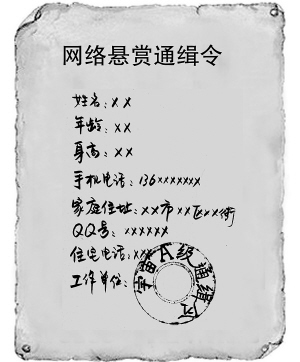 网络悬赏通缉令
姓名：××
年龄：××
身高：××
手机电话：136×××××××
家庭住址：××市××区××街
QQ号：××××××
住宅电话：×××
工作单位：
宇宙A级通缉令